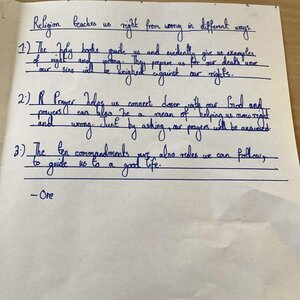 Religion teaches us right from wrong in different ways
1:) The holy books guide us and evidently give us examples
of right and wrong. They prepare us for our death were
our sins will be weighed against our rights.
2:) A Prayer helps us connect closer with our God and
prayers can also be a mean of helping us now right
and wrong. Just by asking, our prayers will be answered
3:) The ten commandments are also rules we can follow,
to guide us to a good life.
- One